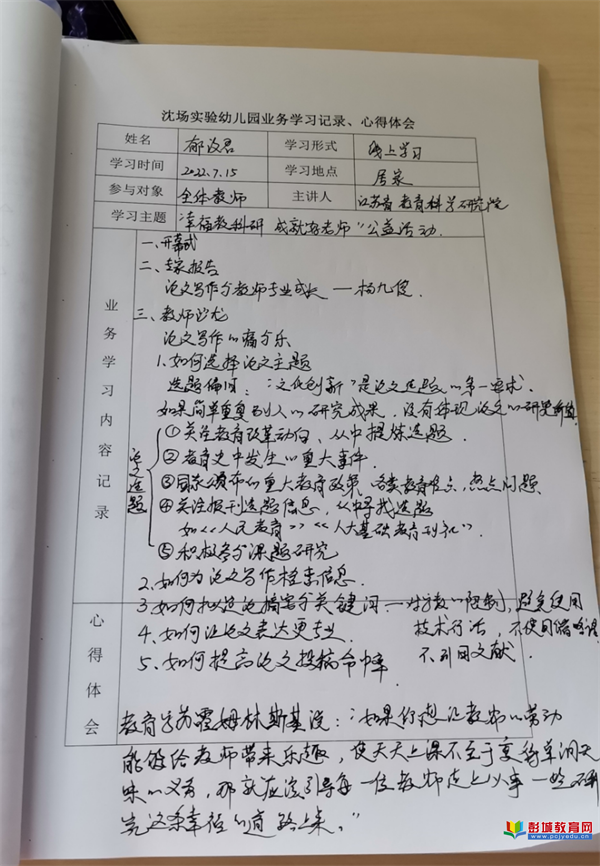 沈场实验幼儿园业务学习记录、心得体会
姓名 郁 君 学习形式 线上学习
学习时间 2022.7.15 学习地点 居家
参与对象 全体教师 主讲人 江苏省教育科学研究院
学习主题 “幸福教科研 成就好老师”公益活动.
业务学习内容记录
一、开幕式
二、专家报告
论文写作与教师专业成长 — 杨九俊.
三、教师沙龙
论文写作的痛与乐
1.如何选择论文主题
选题偏旧：“文化创新”是论文选题的第一要求.
如果简单重复别人的研究成果，没有体现论文的研究新
论文选题
①关注教育改革动向、从中提炼选题.
②教育史中发生的重大事件.
③国家颁布的重大教育政策、各类教育难点,热点问题.
④关注报刊选题信息，从中寻找选题
如《人民教育》《人大基础教育刊》.
⑤积极参与课题研究
2.如何为论文写作检索信息.
3如何拟定论摘要与关键词.—对字数的限制，避免使用
技术行话，不使用缩略语
不引用文献.
4.如何让论文表达更专业.
5、如何提高论文投稿命中率
心得体会
教育学苏霍姆林斯基说：“如果你想让教师的劳动
能够给教师带来乐趣，使天天上课不至于变成单调乏
味的义务，那就应该引导每一位教师走上从事一些研
究这条幸福的道路上来。”
彭城教育网
www.pcjyedu.cn